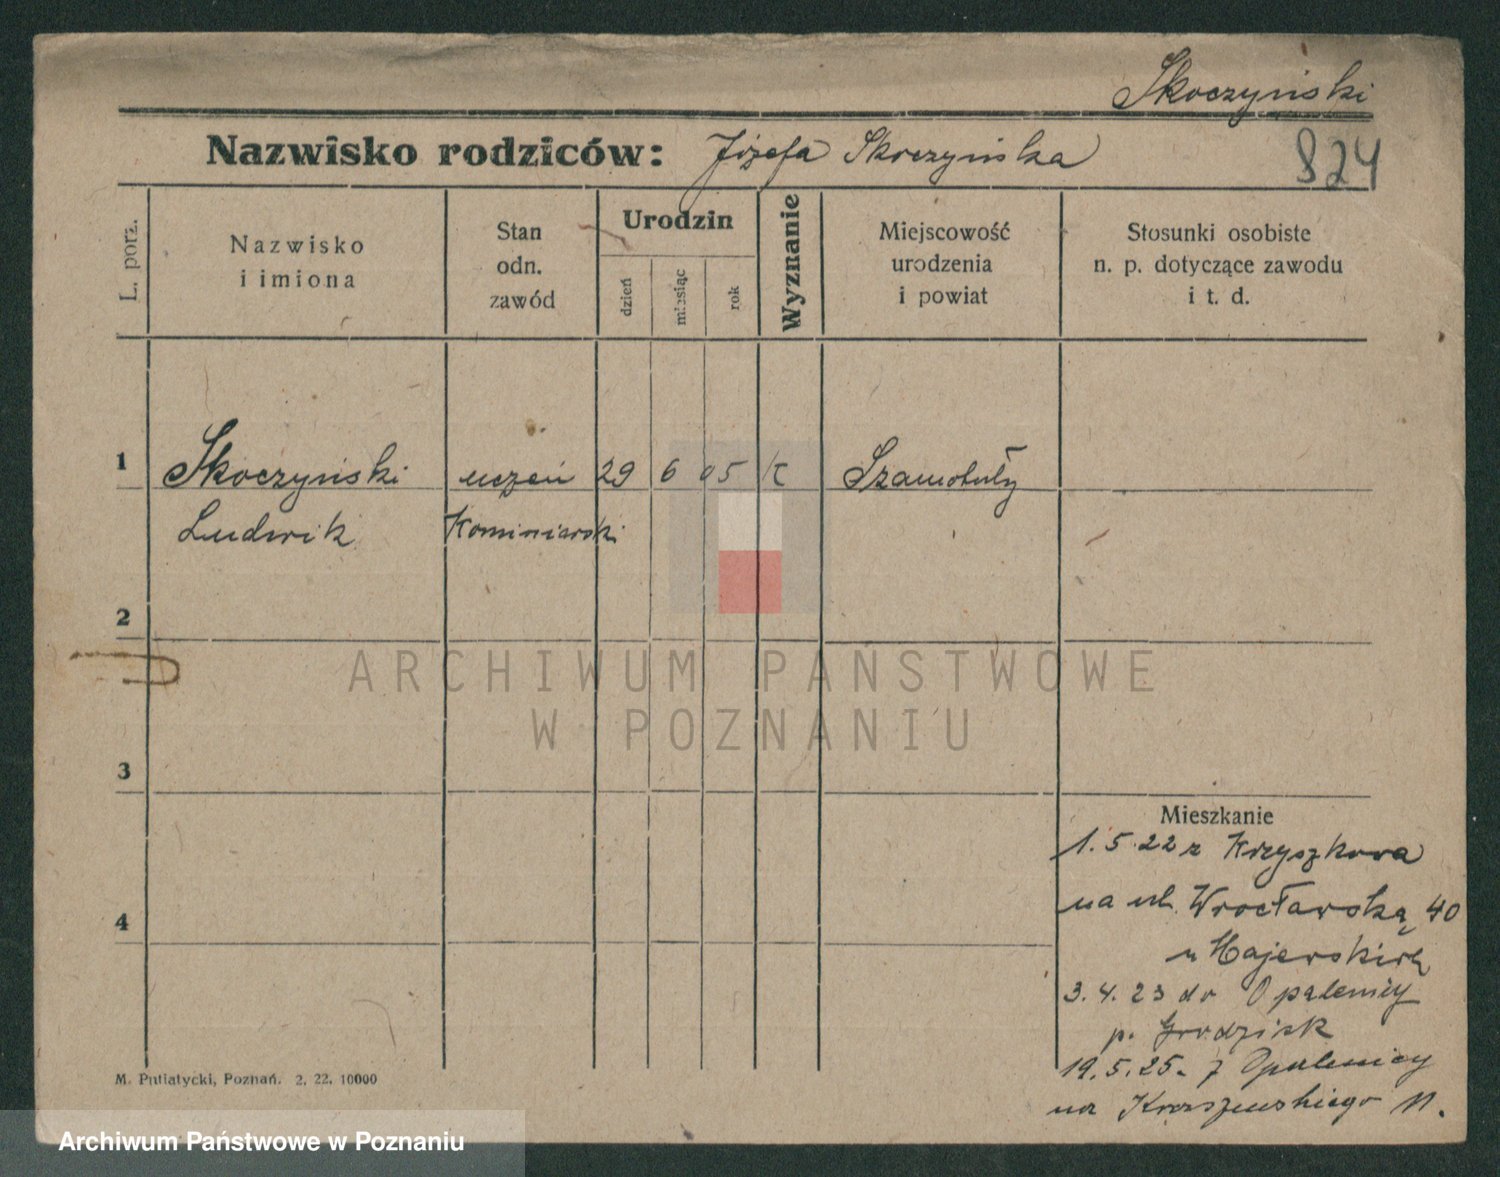 Skoczyński
Nazwisko rodziców: Józefa Skoczyńska
824
L. porz.
Nazwisko
i imiona
Stan
odn.
zawód
Urodzin
dzień
miesiąc
rok
Wyznanie
Miejscowość
urodzenia
i powiat
Stosunki osobiste
n. p. dotyczące zawodu
i t. d.
1 Skoczyński uczeń 29 6 05 K Szamotuły
Ludwik Kominiarski
2
ARCHIWUM PAŃSTWOWE
W POZNANIU
3
Mieszkanie
1.5.22 z Krzyszkowa
na ul. Wrocławską 40
u Majerskich
4
3.4.23 do Opalenicy
p. Grodzisk
19.5.25. z Opalenicy
na Kraszewskiego 11.
M. Putiatycki, Poznań. 2. 22. 10000
Archiwum Państwowe w Poznaniu